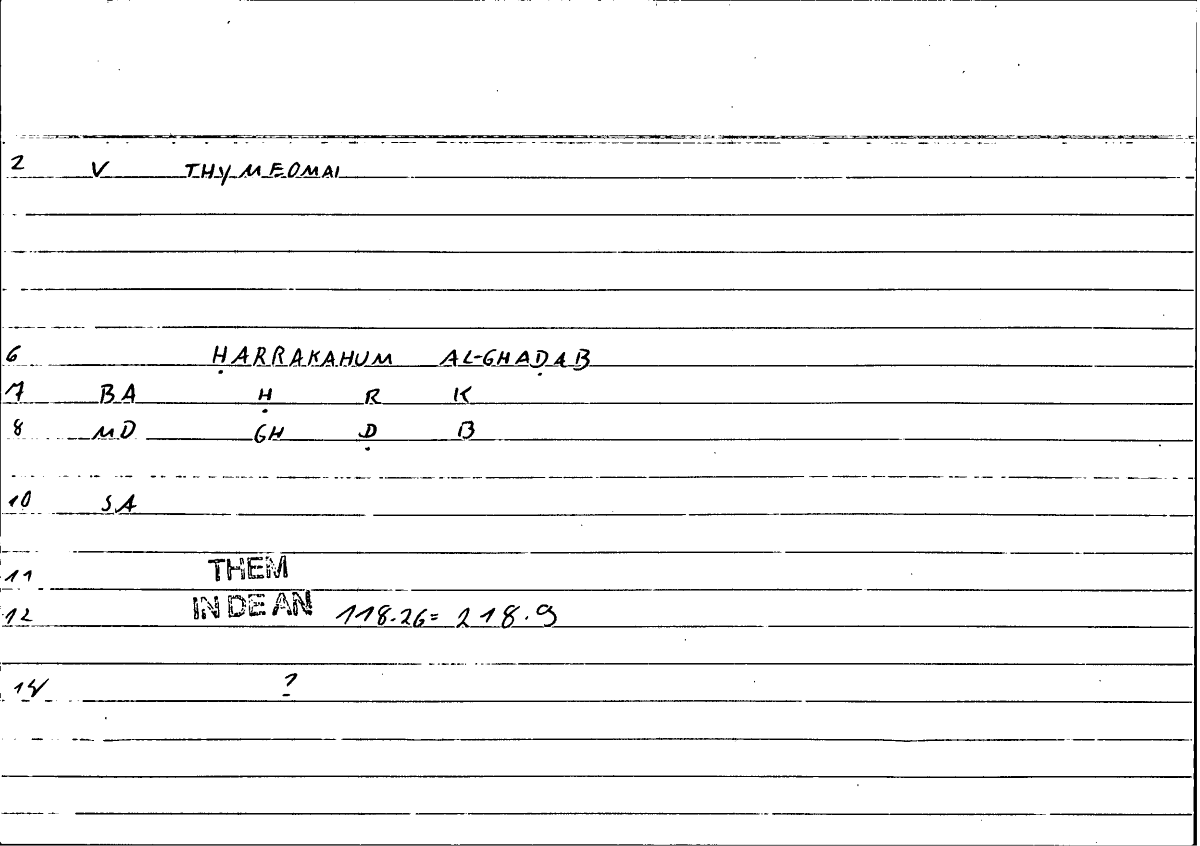 2 V THYMEOMAI
6 ḤARRAKAHUM AL-GHAḌAB
7 BA Ḥ R K
8 MD GH Ḍ B
10 SA
11 THEM
12 IN DE AN 118.26= 218.9
14 ?